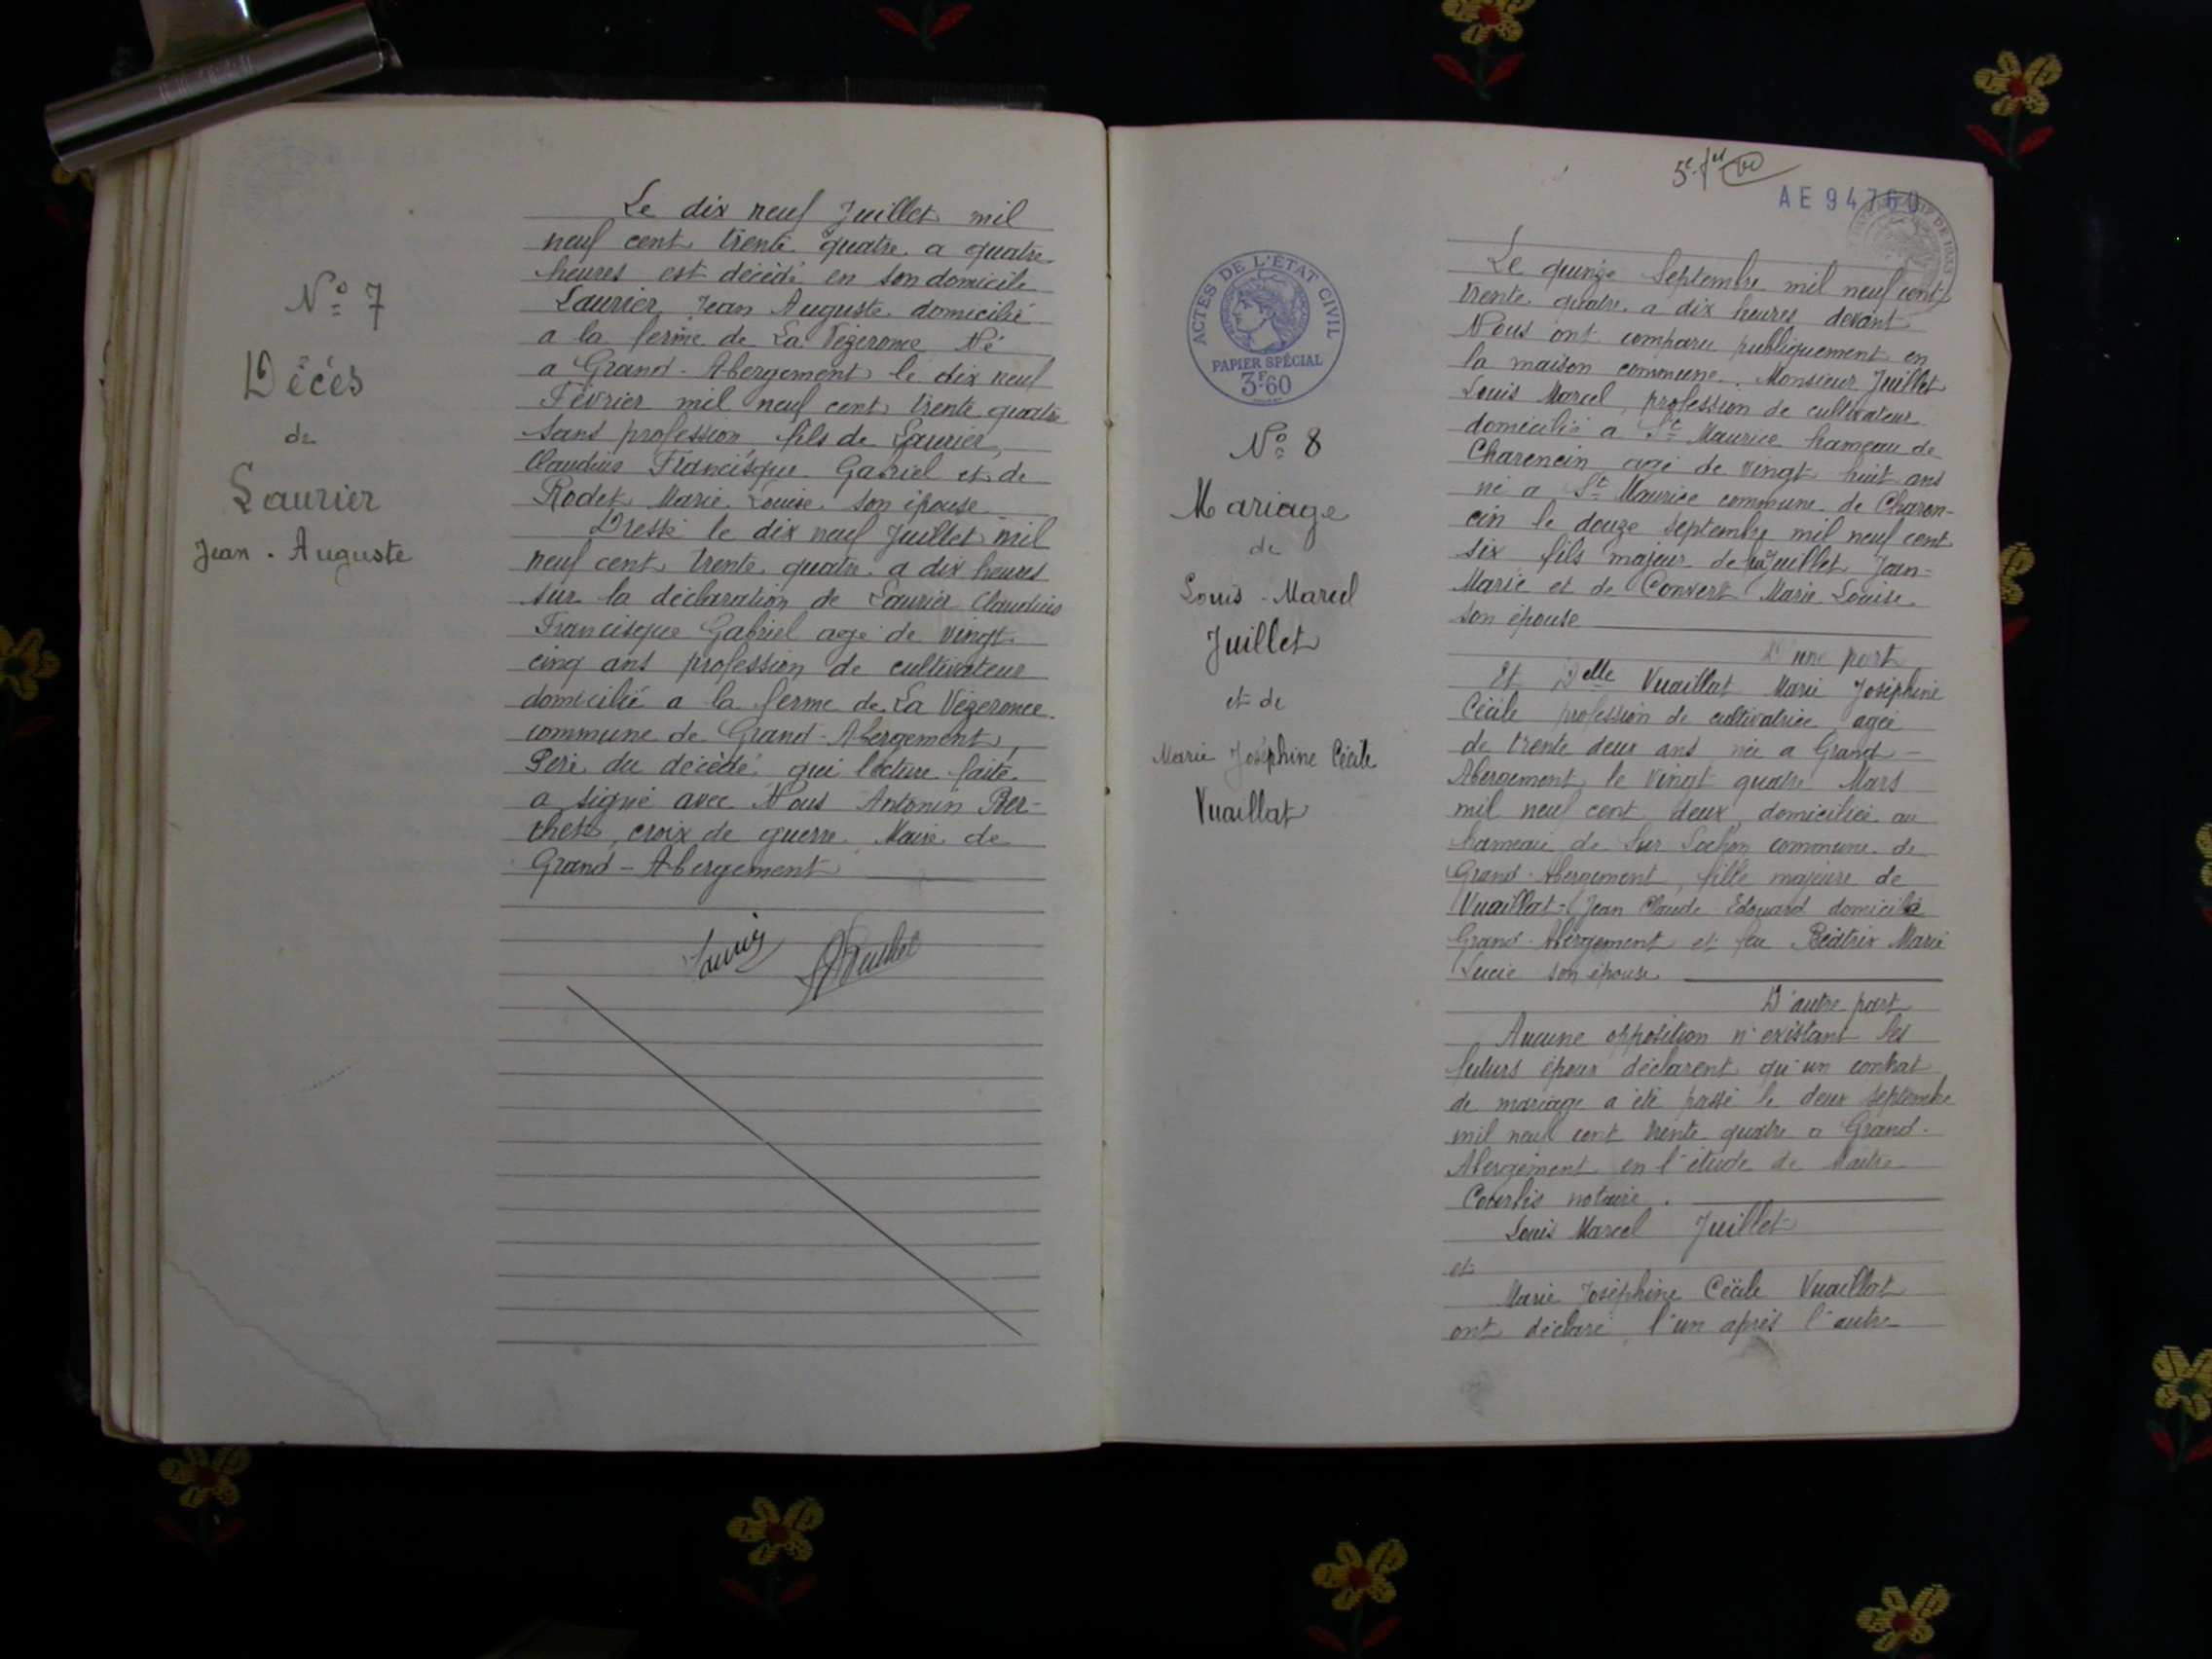 N° 7
Décès
de
Laurier
Jean-Auguste
Le dix neuf Juillet mil
neuf cent trente quatre a quatre
heures est décédé en son domicile
Laurier Jean Auguste domicilié
a la ferme de La Vézeronce Né
a Grand-Abergement le dix neuf
Février mil neuf cent trente quatre
sans profession fils de Laurier,
Claudius Francisque Gabriel et de
Rodet Marie Louise son épouse
Dressé le dix neuf Juillet mil
neuf cent trente quatre a dix heures
sur la déclaration de Laurier Claudius
Francisque Gabriel agé de vingt
cinq ans profession de cultivateur
domicilié a la ferme de La Vézeronce
commune de Grand-Abergement,
Père du décédé qui lecture faite
a signé avec Nous Antonin Ber-
thet, croix de guerre Maire de
Grand-Abergement
AE 94760
ACTES DE L'ETAT CIVIL
PAPIER SPÉCIAL
3F60
N° 8
Mariage
de
Louis-Marcel
Juillet
et de
Marie Joséphine Cécile
Vuaillat
Le quinze Septembre mil neuf cent
trente quatre a dix heures devant
Nous ont comparu publiquement en
la maison commune. Monsieur Juillet
Louis Marcel, profession de cultivateur
domicilié a St Maurice hameau de
Charencin agé de vingt huit ans
né a St Maurice commune de Charen-
cin le douze septembre mil neuf cent
six fils majeur de Juillet Jean-
Marie et de Convert Marie Louise
son épouse
D'une part
Et Delle Vuaillat Marie Joséphine
Cécile profession de cultivatrice agée
de trente deux ans née a Grand-
Abergement le vingt quatre Mars
mil neuf cent deux, domiciliée au
hameau de Sur commune de
Grand-Abergement, fille majeure de
Vuaillat Jean Claude Edouard domicilié
Grand-Abergement et feu Béatrix Marie
Lucie son épouse
D'autre part
Aucune opposition n'existant les
futurs époux déclarent qu'un contrat
de mariage a été passé le deux septembre
mil neuf cent trente quatre a Grand-
Abergement en l'étude de Maitre
notaire.
Louis Marcel Juillet
et
Marie Joséphine Cécile Vuaillat
ont déclaré l'un après l'autre